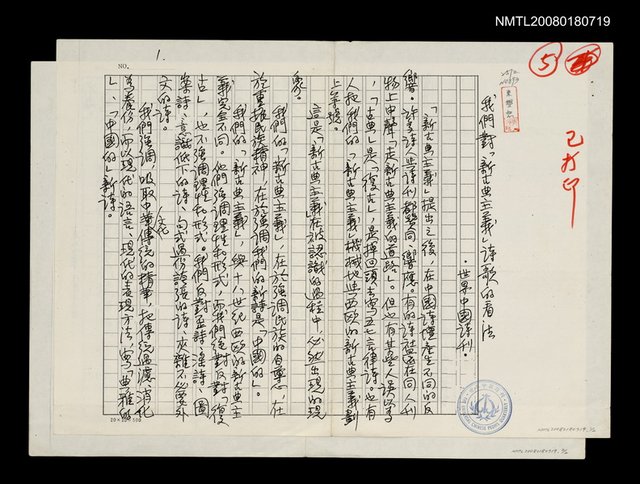 NMTL20080180719
1.
NO.
⑤
已打印
我們對「新古典主義」詩歌的看法
·世界中國詩刊·
「新古典主義」提出之後，在中國詩壇產生不同的反
響。許多詩人與詩刊都贊同、響應。有的詩社還在同人刊
物上申聲「走新古典主義的道路」。但也有某些人誤以為
「古典」是「復古」，是掉回頭去寫五七言律詩。也有
人把我們的「新古典主義」機械地與西歐的新古典主義劃
上等號。
這是「新古典主義」在被認識的過程中，必然出現的現
象。
我們的「新古典主義」，在於強調民族的自尊心，在
於重建民族精神，在於強調我們的新詩是「中國的」。
我們的「新古典主義」，與十八世紀西歐的新古典主
義完全不同。他們強調理性和形式，而我們絕對反對「復
古」，也不強調理性和形式。我們反對歪詩、淫詩、圖
案詩、意識低下的詩、句式過份誇張的詩、夾雜不必要外
文的詩。
我們強調：吸取中華文化傳統的精華，把傳統過濾、消化
為養份，而以現代的語言、現代的表現方法，寫「典雅的
」、「中國的」新詩。
20×
NMTL20080180719
NMTL20080180719